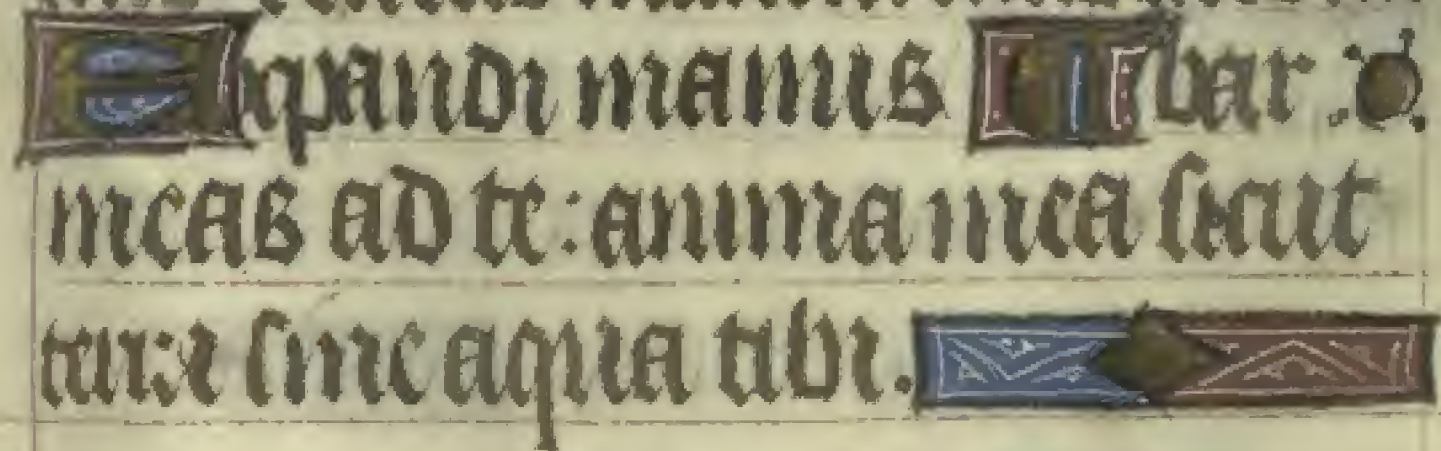 Expandi manus bar
meas ad te: anima mea sicut
terra sine aqua tibi.